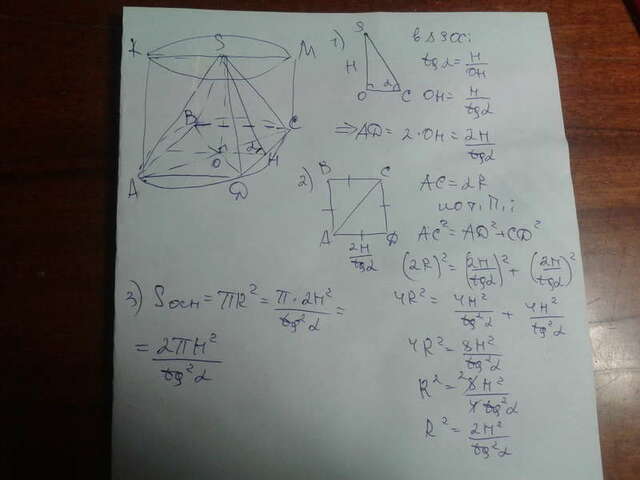 K S M
B C
O α H
A D
1)
S
H
O α C
в Δ SOC:
tg α = H/OH
OH = H/tgα
=> AD = 2·OH = 2H/tgα
2)
B C
A D
2H/tgα
AC = 2R
по т. П.:
AC² = AD² + CD²
(2R)² = (2H/tgα)² + (2H/tgα)²
4R² = 4H²/tg²α + 4H²/tg²α
4R² = 8H²/tg²α
R² = ²8H²/4tg²α
R² = 2H²/tg²α
3) Sосн = πR² = π·2H²/tg²α =
= 2πH²/tg²α